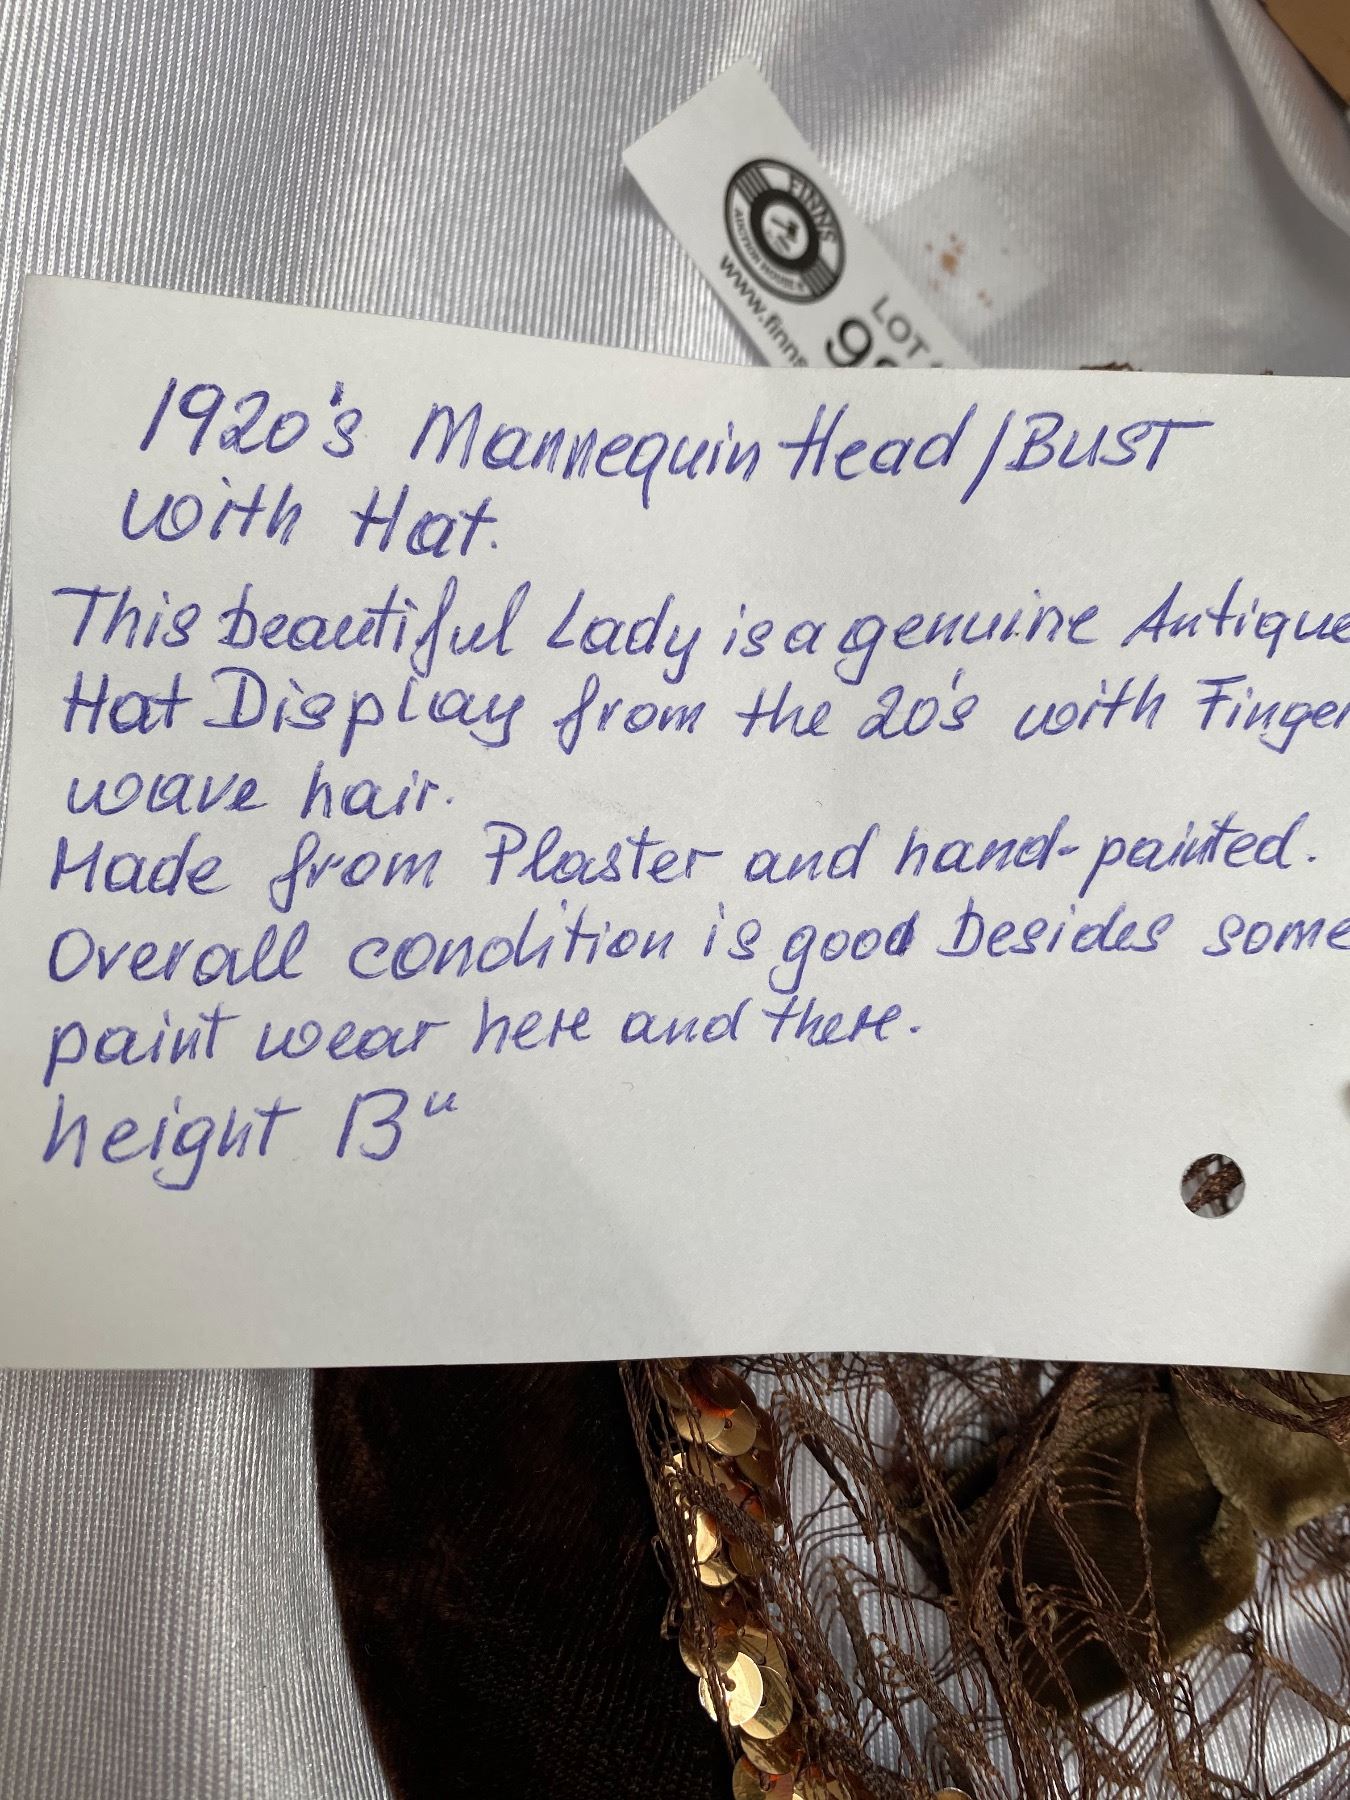 FINNS
AUCTION HOUSE
www.finns
LOT
1920's Mannequin Head/BUST
with Hat.
This beautiful Lady is a genuine Antique
Hat Display from the 20's with Finger
wave hair.
Made from Plaster and hand-painted.
Overall condition is good besides some
paint wear here and there.
height 13"